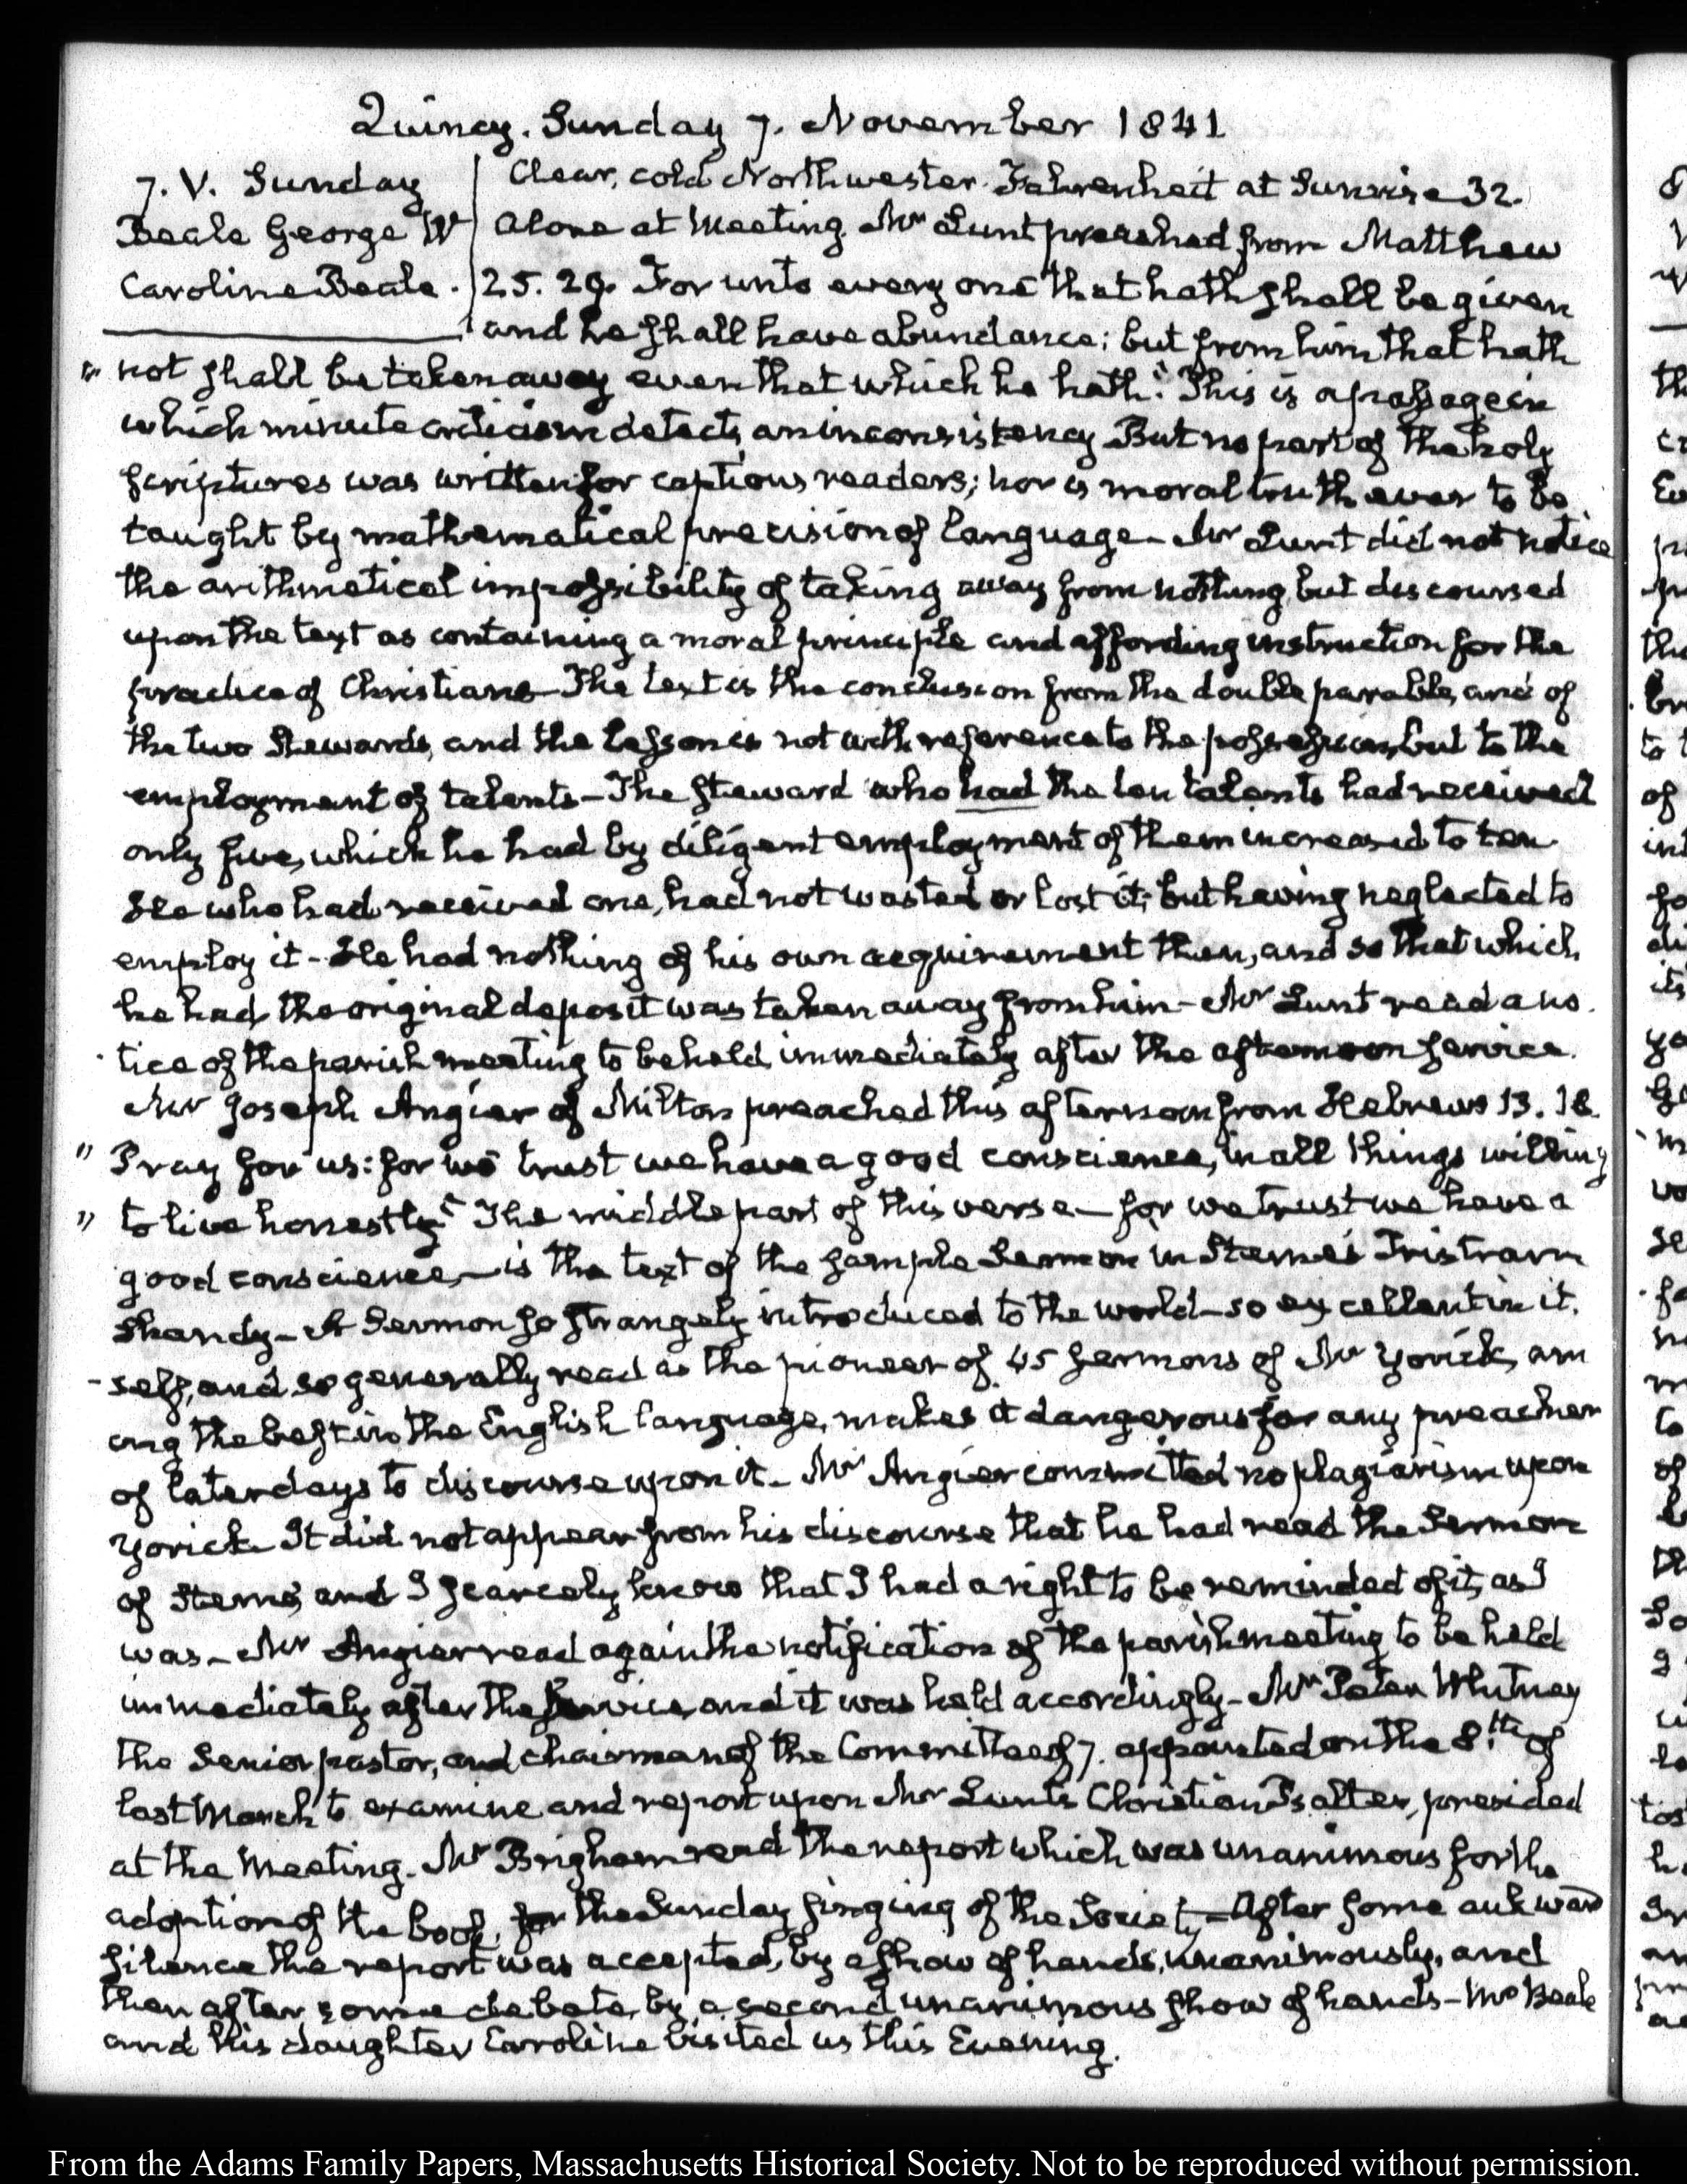 Quincy. Sunday 7. November 1841
7. V. Sunday
Beale George W
Caroline Beale.
Clear, cold Northwester. Fahrenheit at Sunrise 32.
Alone at Meeting. Mr Lunt preached from Matthew
25. 29. For unto every one that hath shall be given
and he shall have abundance; but from him that hath
" not shall be taken away even that which he hath." This is a passage in
which minute criticism detects an inconsistency But no part of the holy
scriptures was written for captious readers; nor is moral truth ever to be
taught by mathematical precision of language – Mr Lunt did not notice
the arithmetical impossibility of taking away from nothing, but discoursed
upon the text as containing a moral principle and affording instruction for the
practice of Christians – The text is the conclusion from the double parable, and of
the two Stewards, and the lesson is not with reference to the possession, but to the
employment of talents – The steward who had the ten talents had received
only five, which he had by diligent employment of them increased to ten.
He who had received one, had not wasted or lost it; but having neglected to
employ it – He had nothing of his own acquirement then, and so that which
he had the original deposit was taken away from him – Mr Lunt read a no-
tice of the parish meeting to be held immediately after the afternoon service.
Mr Joseph Angier of Milton preached this afternoon from Hebrews 13. 18.
" Pray for us: for we trust we have a good conscience, in all things willing
" to live honestly" The middle part of this verse – for we trust we have a
good conscience, – is the text of the sample Sermon in Sterne's Tristram
Shandy – A Sermon so strangely introduced to the world – so excellent in it-
-self, and so generally read as the pioneer of 45 sermons of Mr Yorick, am
ong the best in the English language, makes it dangerous for any preacher
of later days to discourse upon it – Mr Angier committed no plagiarism upon
Yorick It did not appear from his discourse that he had read the Sermon
of Sterne, and I scarcely know that I had a right to be reminded of it, as I
was – Mr Angier read again the notification of the parish meeting to be held
immediately after the service and it was held accordingly – Mr Peter Whitney
the Senior pastor, and chairman of the Committee of 7. appointed on the 8.th of
last March to examine and report upon Mr Lunts Christian Psalter, presided
at the Meeting. Mr Brigham read the report which was unanimous for the
adoption of the book, for the Sunday singing of the Society – After some aukward
silence the report was accepted, by a show of hands, unanimously, and
then after some debate, by a second unanimous show of hands – Mr Beale
and his daughter Caroline visited us this Evening.
From the Adams Family Papers, Massachusetts Historical Society. Not to be reproduced without permission.